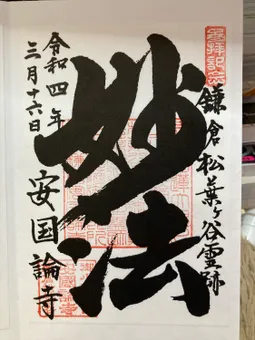 鎌倉松葉ヶ谷霊跡
妙法
令和四年
三月十六日
安国論寺